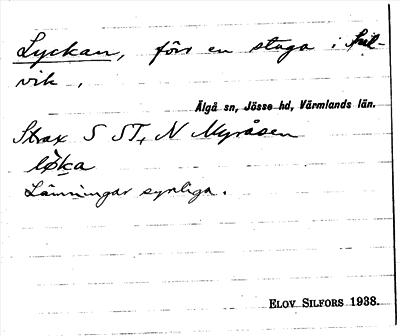 Lyckan, förr en stuga i Sul-
vik.
Älgå sn, Jösse hd, Värmlands län.
Strax S ST, N Myråsen
løka
Lämningar synliga.
ELOV SILFORS 1938.